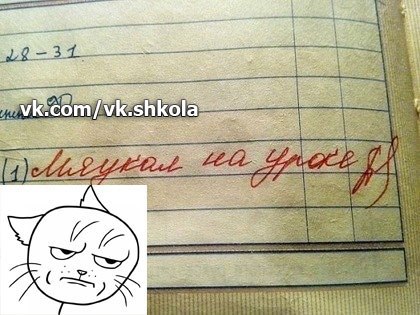 28-31.
vk.com/vk.shkola
(1) Мяукал на уроке